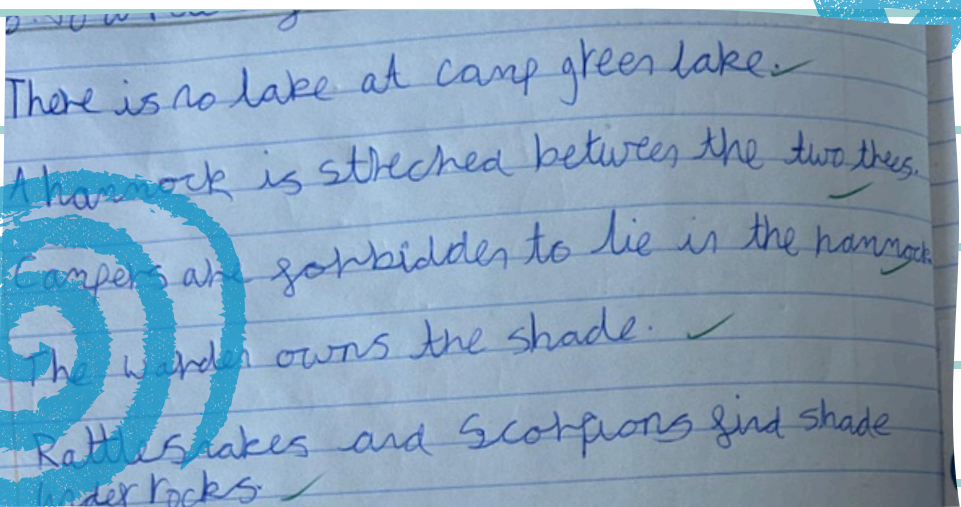 There is no lake at camp green lake.
A hammock is streched between the two trees.
Campers are forbidden to lie in the hammock.
The warden owns the shade.
Rattlesnakes and Scorpions find shade
under rocks.